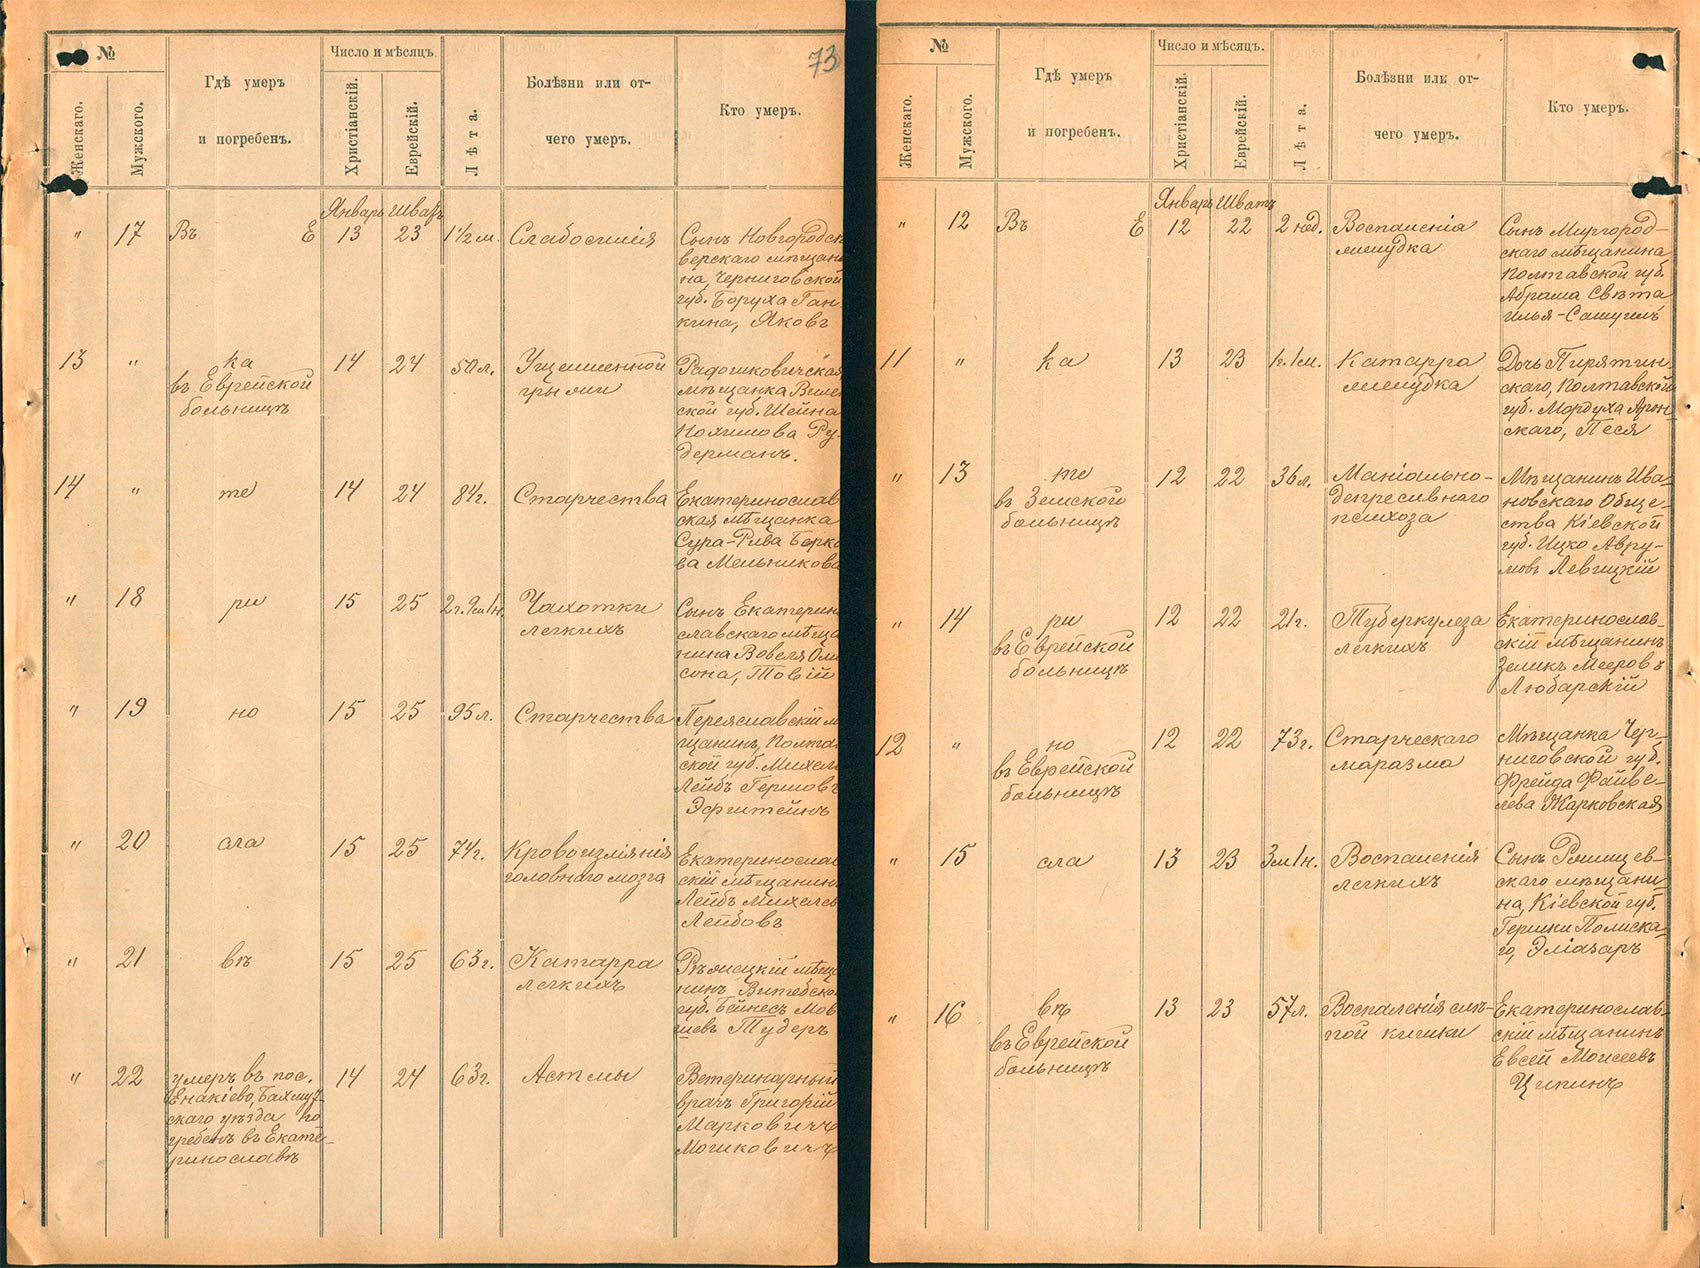 73
№
Женскаго.
Мужского.
Гдѣ умеръ
и погребенъ.
Число и мѣсяцъ.
Христіанскій.
Еврейскій.
Лѣта.
Болѣзни или от-
чего умеръ.
Кто умеръ.
Январь Шватъ
" 17 Въ Е 13 23 1½ м. Слабосилія
Сынъ Новгородсѣ
верскаго мѣщани
на, Черниговской
губ. Боруха Ган
кина, Яковъ
13 " ка 14 24 50 л. Ущемленной
въ Еврейской грыжи
больницѣ
Радошковичская
мѣщанка Вилен
ской губ. Шейна
Нохимова Ру-
дерманъ.
14 " те 14 24 84 г. Старчества
Екатеринослав
ская мѣщанка
Сура-Рива Берко
ва Мельникова
" 18 ри 15 25 2 г. 9 м 1 н. Чахотки
легкихъ
Сынъ Екатерин
славскаго мѣща
нина Вовеля
сона, Товій
" 19 но 15 25 95 л. Старчества
Переяславскій м
щанинъ, Полтав
ской губ. Михель
Лейбъ Гершовъ
Эфштейнъ
" 20 сла 15 25 74 г. Кровоизліянія
головного мозга
Екатеринослав
скій мѣщанинъ
Лейбъ Михелев
Лейбовъ
" 21 вѣ 15 25 63 г. Катарра
легкихъ
мѣща
нинъ Витебской
губ. Бейнесъ Мов
шевъ Тудеръ
" 22 умеръ въ пос. 14 24 63 г. Астмы
Енакіево, Бахмут
скаго уѣзда по
гребенъ въ Екате-
ринославѣ
Ветеринарный
врачъ Григорій
Марковичъ
Мошковичъ
№
Женскаго.
Мужского.
Гдѣ умеръ
и погребенъ.
Число и мѣсяцъ.
Христіанскій.
Еврейскій.
Лѣта.
Болѣзни или от-
чего умеръ.
Кто умеръ.
Январь Шватъ
" 12 Въ Е 12 22 2 нед. Воспаленія
желудка
Сынъ Миргород-
скаго мѣщанина
Полтавской губ.
Абрама Свѣта
Илья-Самуилъ
11 " ка 13 23 1 г. 1 м. Катарра
желудка
Дочь Пирятин-
скаго, Полтавской
губ. Мордуха Арон-
скаго, Песя
" 13 те 12 22 36 л. Маніально-
въ Земской депресивнаго
больницѣ психоза
Мѣщанинъ Ива-
новскаго Обще-
ства Кіевской
губ. Ицко Авру-
мовъ Левицкій
" 14 ри 12 22 21 г. Туберкулеза
въ Еврейской легкихъ
больницѣ
Екатеринослав-
скій мѣщанинъ
Зеликъ Мееровъ
Любарскій
12 " но 12 22 73 г. Старческаго
въ Еврейской маразма
больницѣ
Мѣщанка Чер-
ниговской губ.
Фрейда Файве-
лева Жарковская
" 15 сла 13 23 3 м 1 н. Воспаленія
легкихъ
Сынъ Ржищев-
скаго мѣщани-
на, Кіевской губ.
Гершки Полиска-
го, Эліазаръ
" 16 вѣ 13 23 57 л. Воспаленія слѣ-
въ Еврейской пой кишки
больницѣ
Екатеринослав-
скій мѣщанинъ
Евсей Моисеевъ
Ципинъ